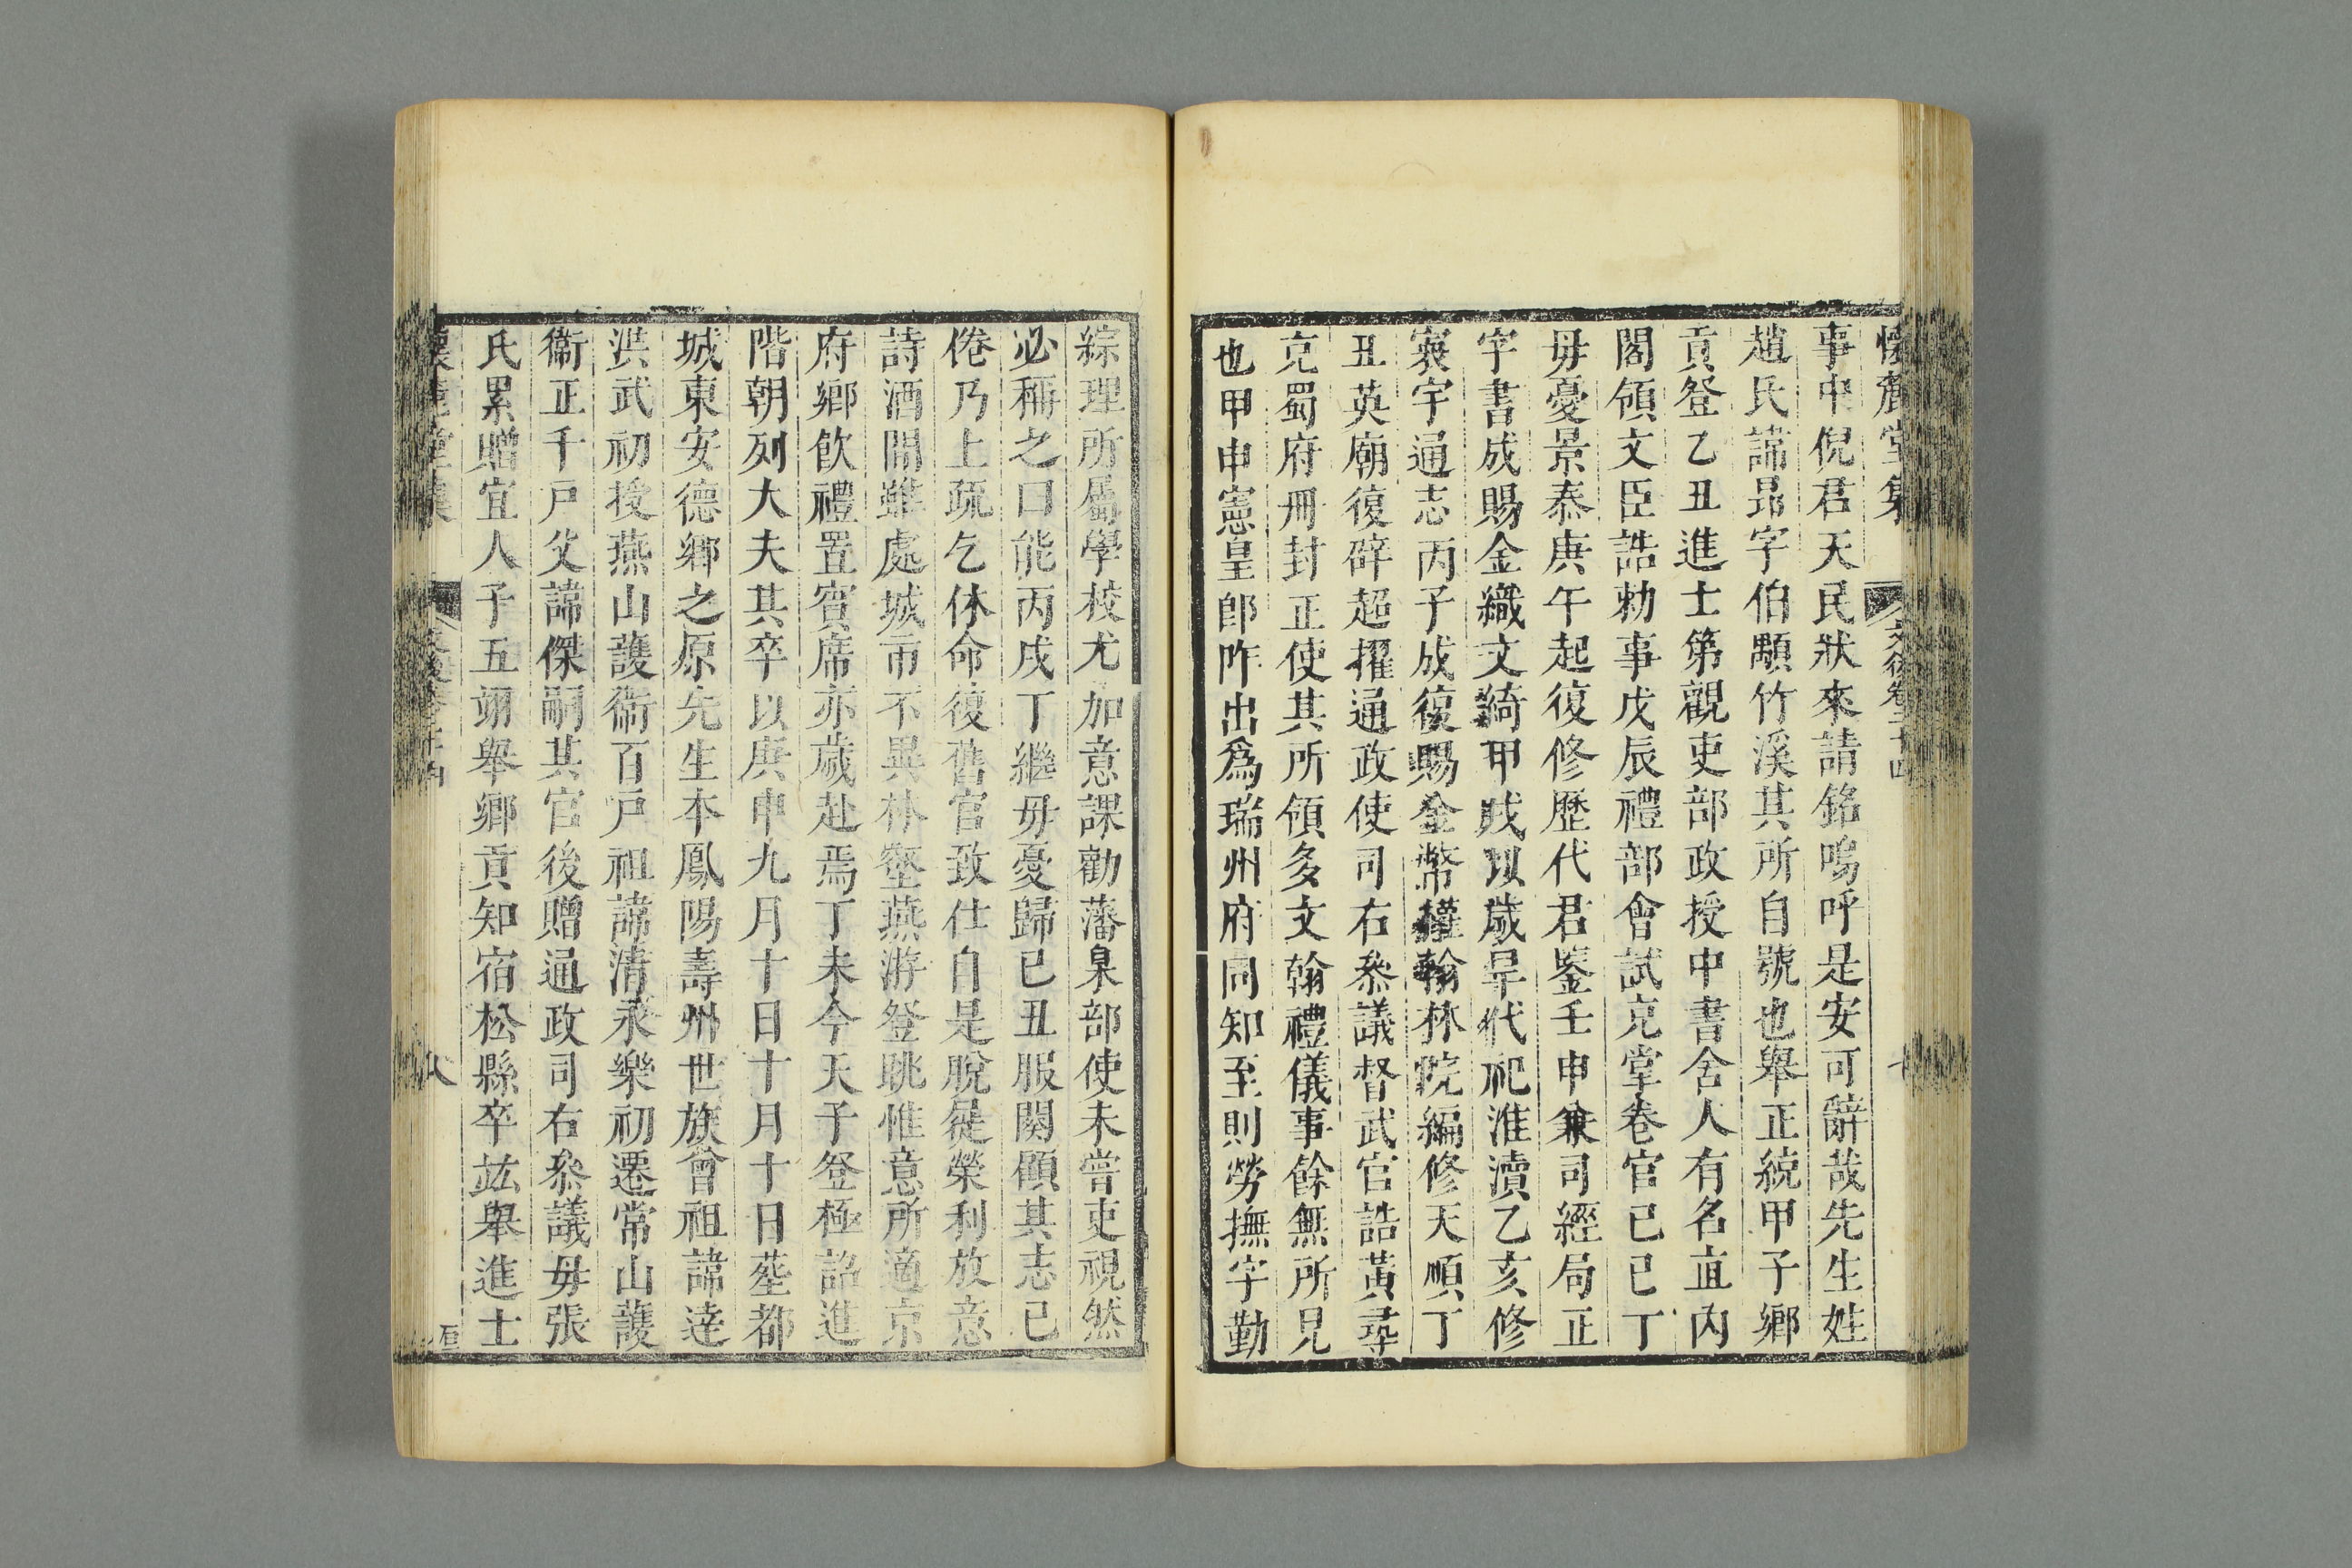 懷麓堂集 文後卷二十四
事中倪君天民狀來請銘嗚呼是安可辭哉先生姓
趙氏諱昂字伯顒竹溪其所自號也舉正統甲子鄉
貢登乙丑進士第觀吏部政授中書舍人有名直內
閣領文臣誥勅事戊辰禮部會試充掌卷官己巳丁
毋憂景泰庚午起復修歷代君鑒壬申兼司經局正
字書成賜金織文綺甲戌以歲旱代祀淮瀆乙亥修
寰宇通志丙子成復賜金幣擢翰林院編修天順丁
丑英廟復辟超擢通政使司右叅議督武官誥黃尋
克蜀府冊封正使其所領多文翰禮儀事餘無所見
也甲申憲皇卽阼出爲瑞州府同知至則勞撫字勤
綜理所屬學校尤加意課勸藩臬部使未嘗吏視然
必稱之曰能丙戌丁繼毋憂歸己丑服闋顧其志已
倦乃上疏乞休命復舊官致仕自是脫屣榮利放意
詩酒間雖處城市不異林壑燕游登眺惟意所適京
府鄉飲禮置賓席亦歲赴焉丁未今天子登極詔進
階朝列大夫其卒以庚申九月十日十月十日塟都
城東安德鄉之原先生本鳳陽壽州世族曾祖諱達
洪武初授燕山護衞百戶祖諱清永樂初遷常山護
衞正千戶父諱傑嗣其官後贈通政司右叅議毋張
氏累贈宜人子五翊舉鄉貢知宿松縣卒竑舉進士
懷麓堂集 文後卷二十四 八